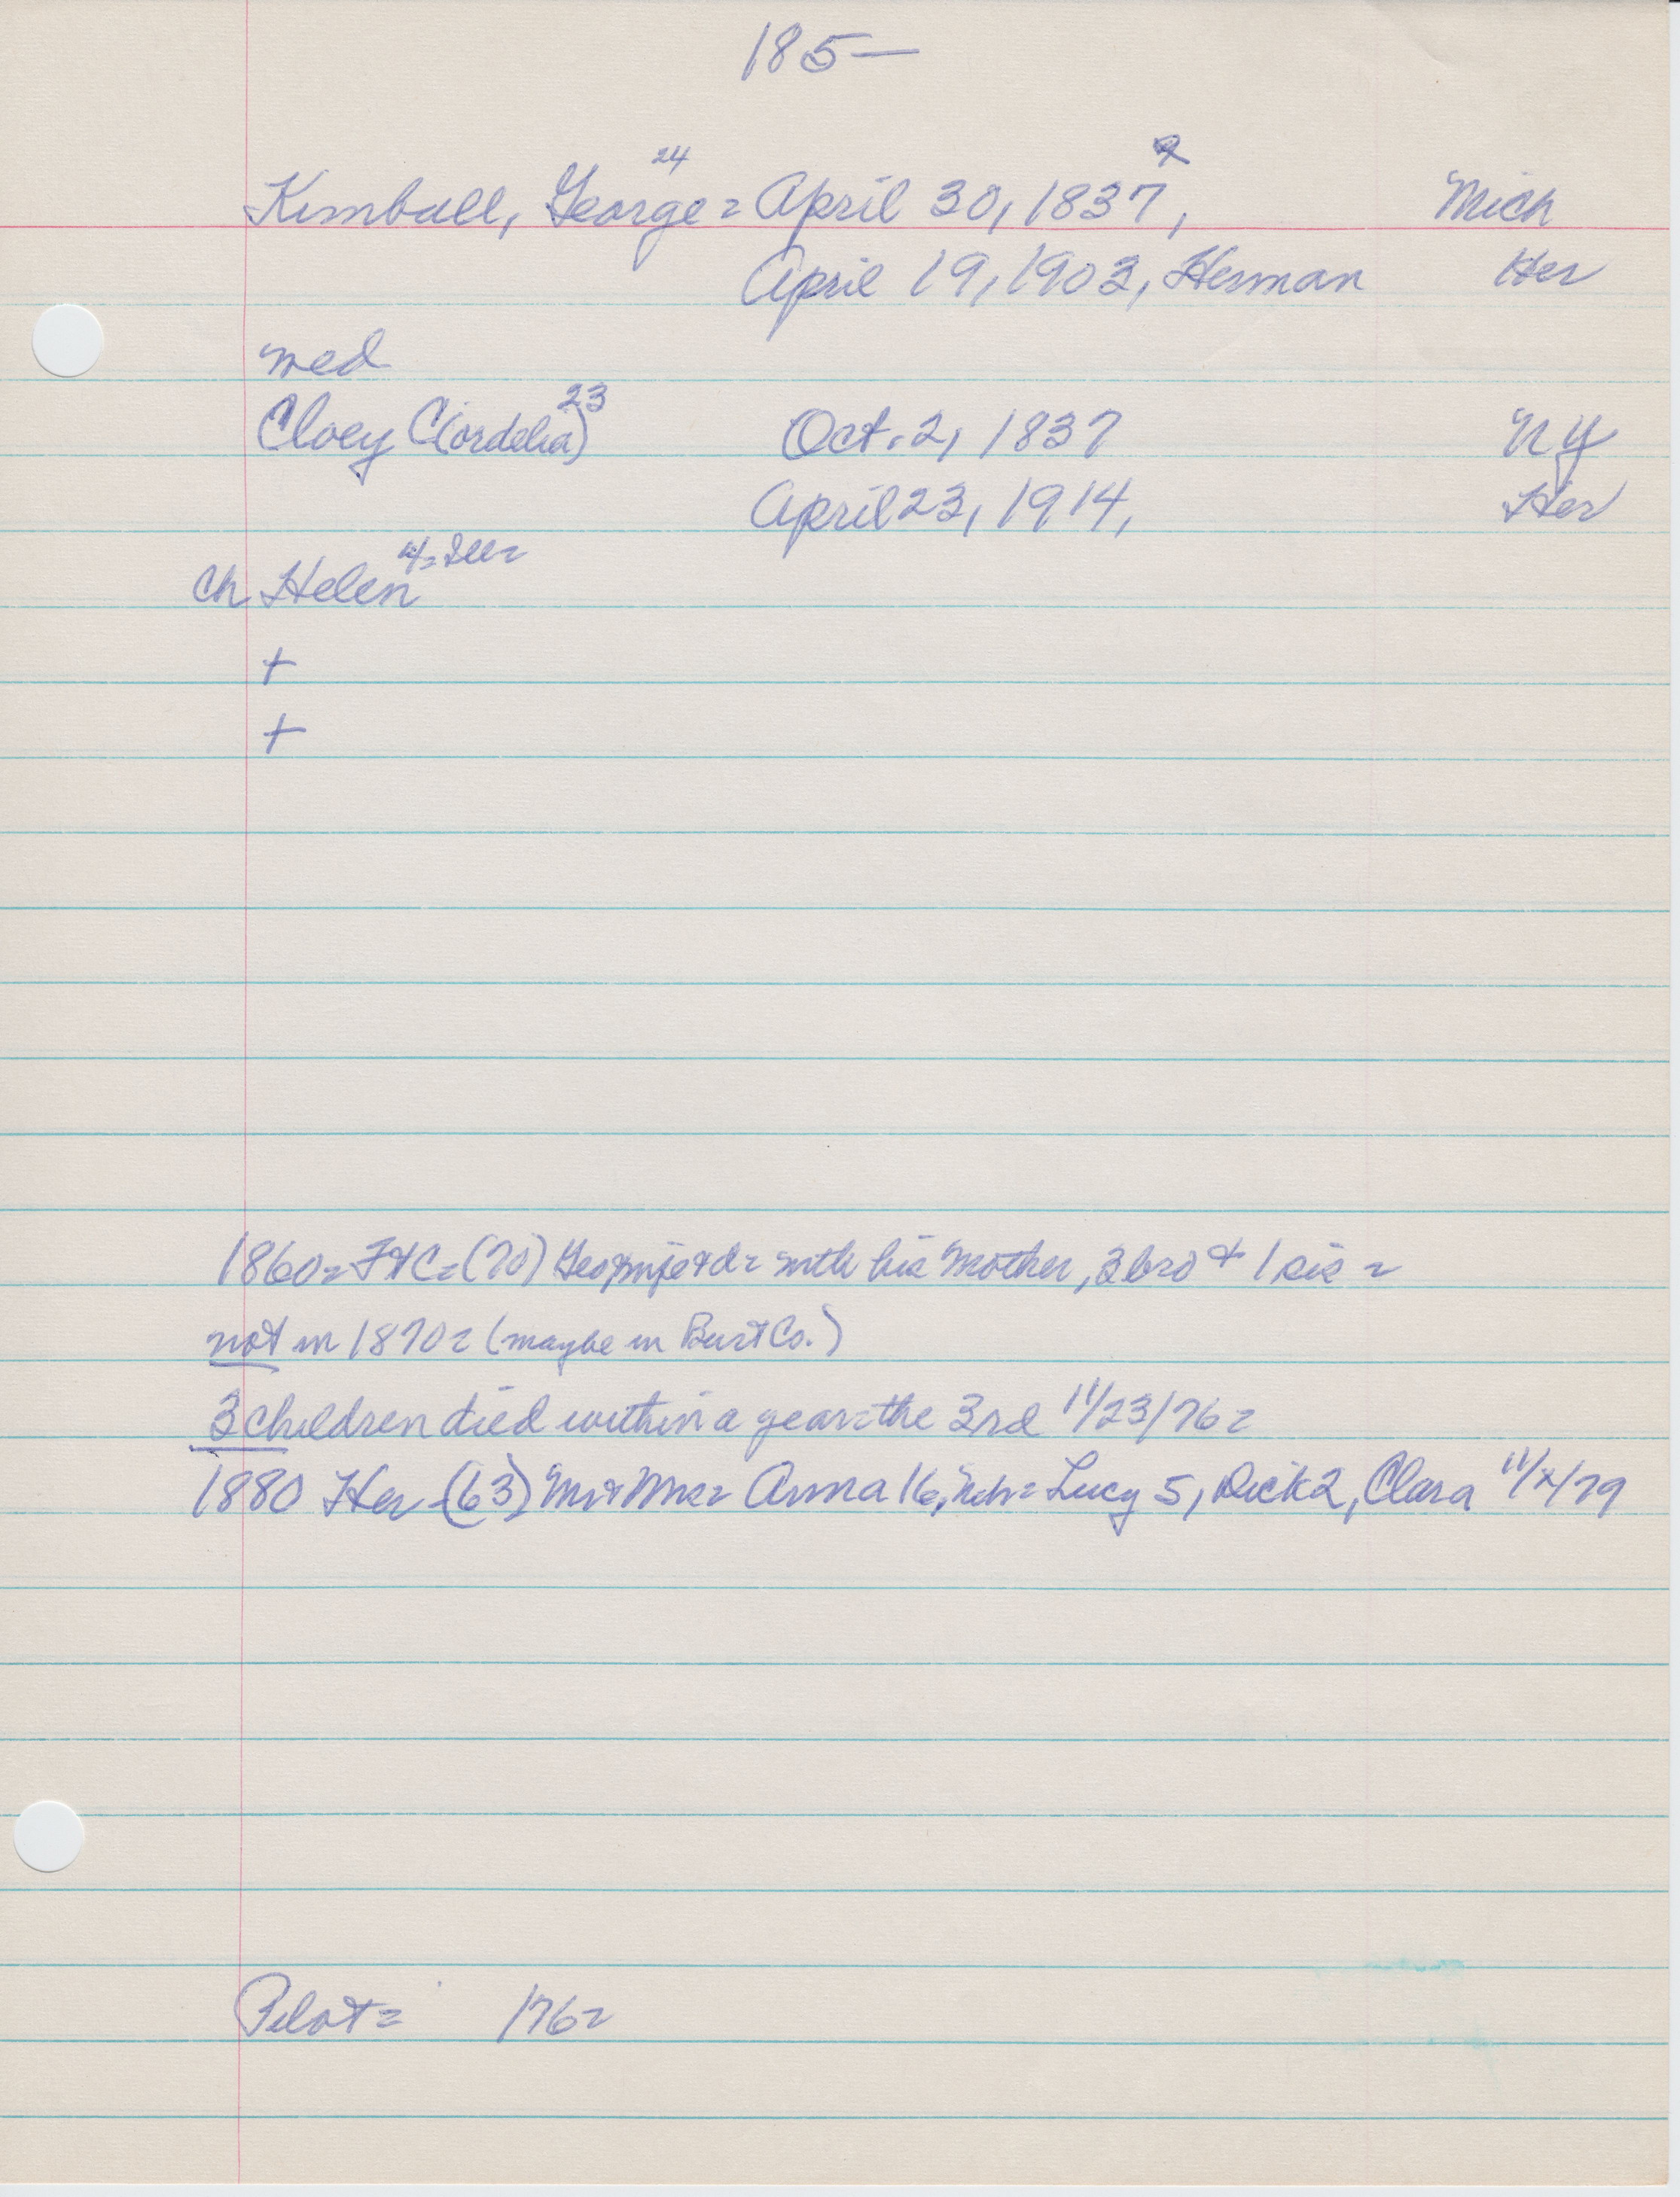 185—
24
Kimball, George = April 30, 1837, Mich
April 19, 1903, Herman Her
med
23
Cloey C(ordelia) Oct. 2, 1837 NY
April 23, 1914, Her
4=
ch Helen
+
+
1860= (70) Geo with his Mother, 3 bro + 1 sis =
not in 1870 = (maybe in Burt Co.)
3 children died within a year = the 3rd 11/23/76 =
1880 Her (63) Mr + Mrs = Anna 16, Lucy 5, Dick 2, Clara 11/ /79
Pilot = 176 =